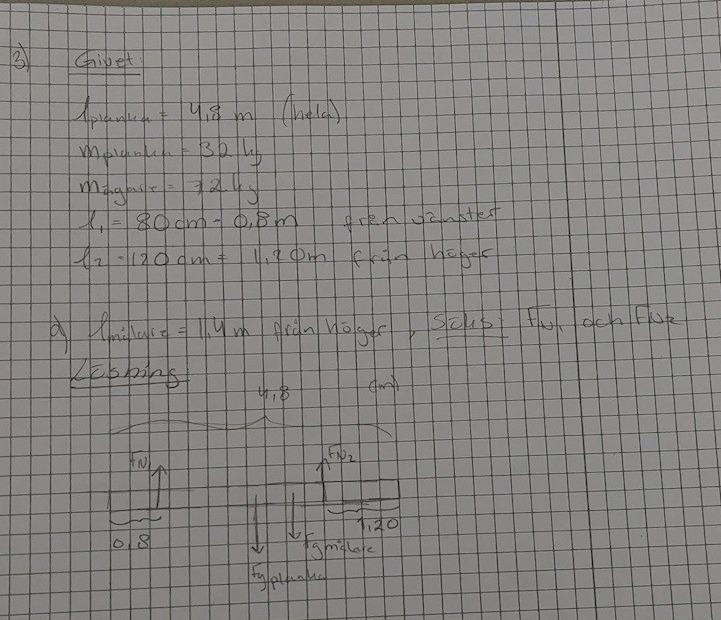 3) Givet:
lplanka = 4,8 m (hela)
mplanka = 32 kg
mmålare = 72 kg
l₁ = 80 cm = 0,8 m från vänster
l₂ = 120 cm = 1,20 m från höger
a) lmålare = 1,4 m från höger, Sökes: FN₁ och FN₂
Lösning
4,8 (m)
FN₁ FN₂
0,8 1,20
Fgmålare
Fgplanka